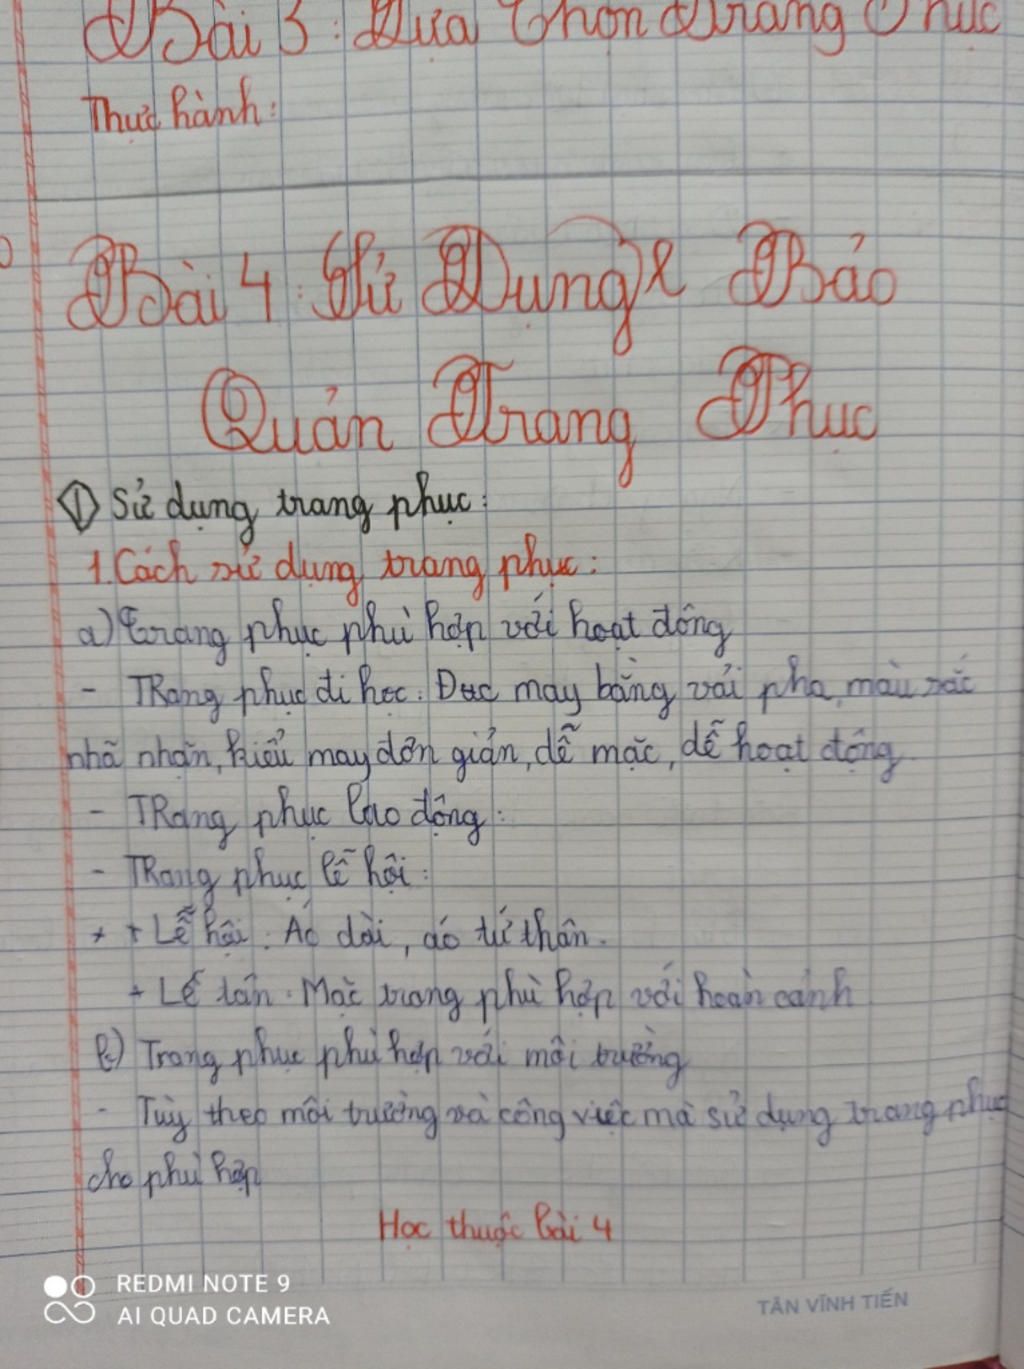 Bài 3: Lựa Chọn Trang Phục
Thực hành:
Bài 4: Sử Dụng & Bảo
Quản Trang Phục
I Sử dụng trang phục:
1. Cách sử dụng trang phục:
a) Trang phục phù hợp với hoạt động
- TRang phục đi học: Đực may bằng vải pha, màu sắc
nhã nhặn, kiểu may đơn giản, dễ mặc, dễ hoạt động
- TRang phục lao động:
- TRang phục lễ hội:
+ + Lễ hội: Áo dài, áo tứ thân.
+ Lễ tân: Mặc trang phù hợp với hoàn cảnh
b) Trang phục phù hợp với môi trường
- Tùy theo môi trường và công việc mà sử dụng trang phục
cho phù hợp
Học thuộc bài 4
REDMI NOTE 9
AI QUAD CAMERA
TÂN VĨNH TIẾN